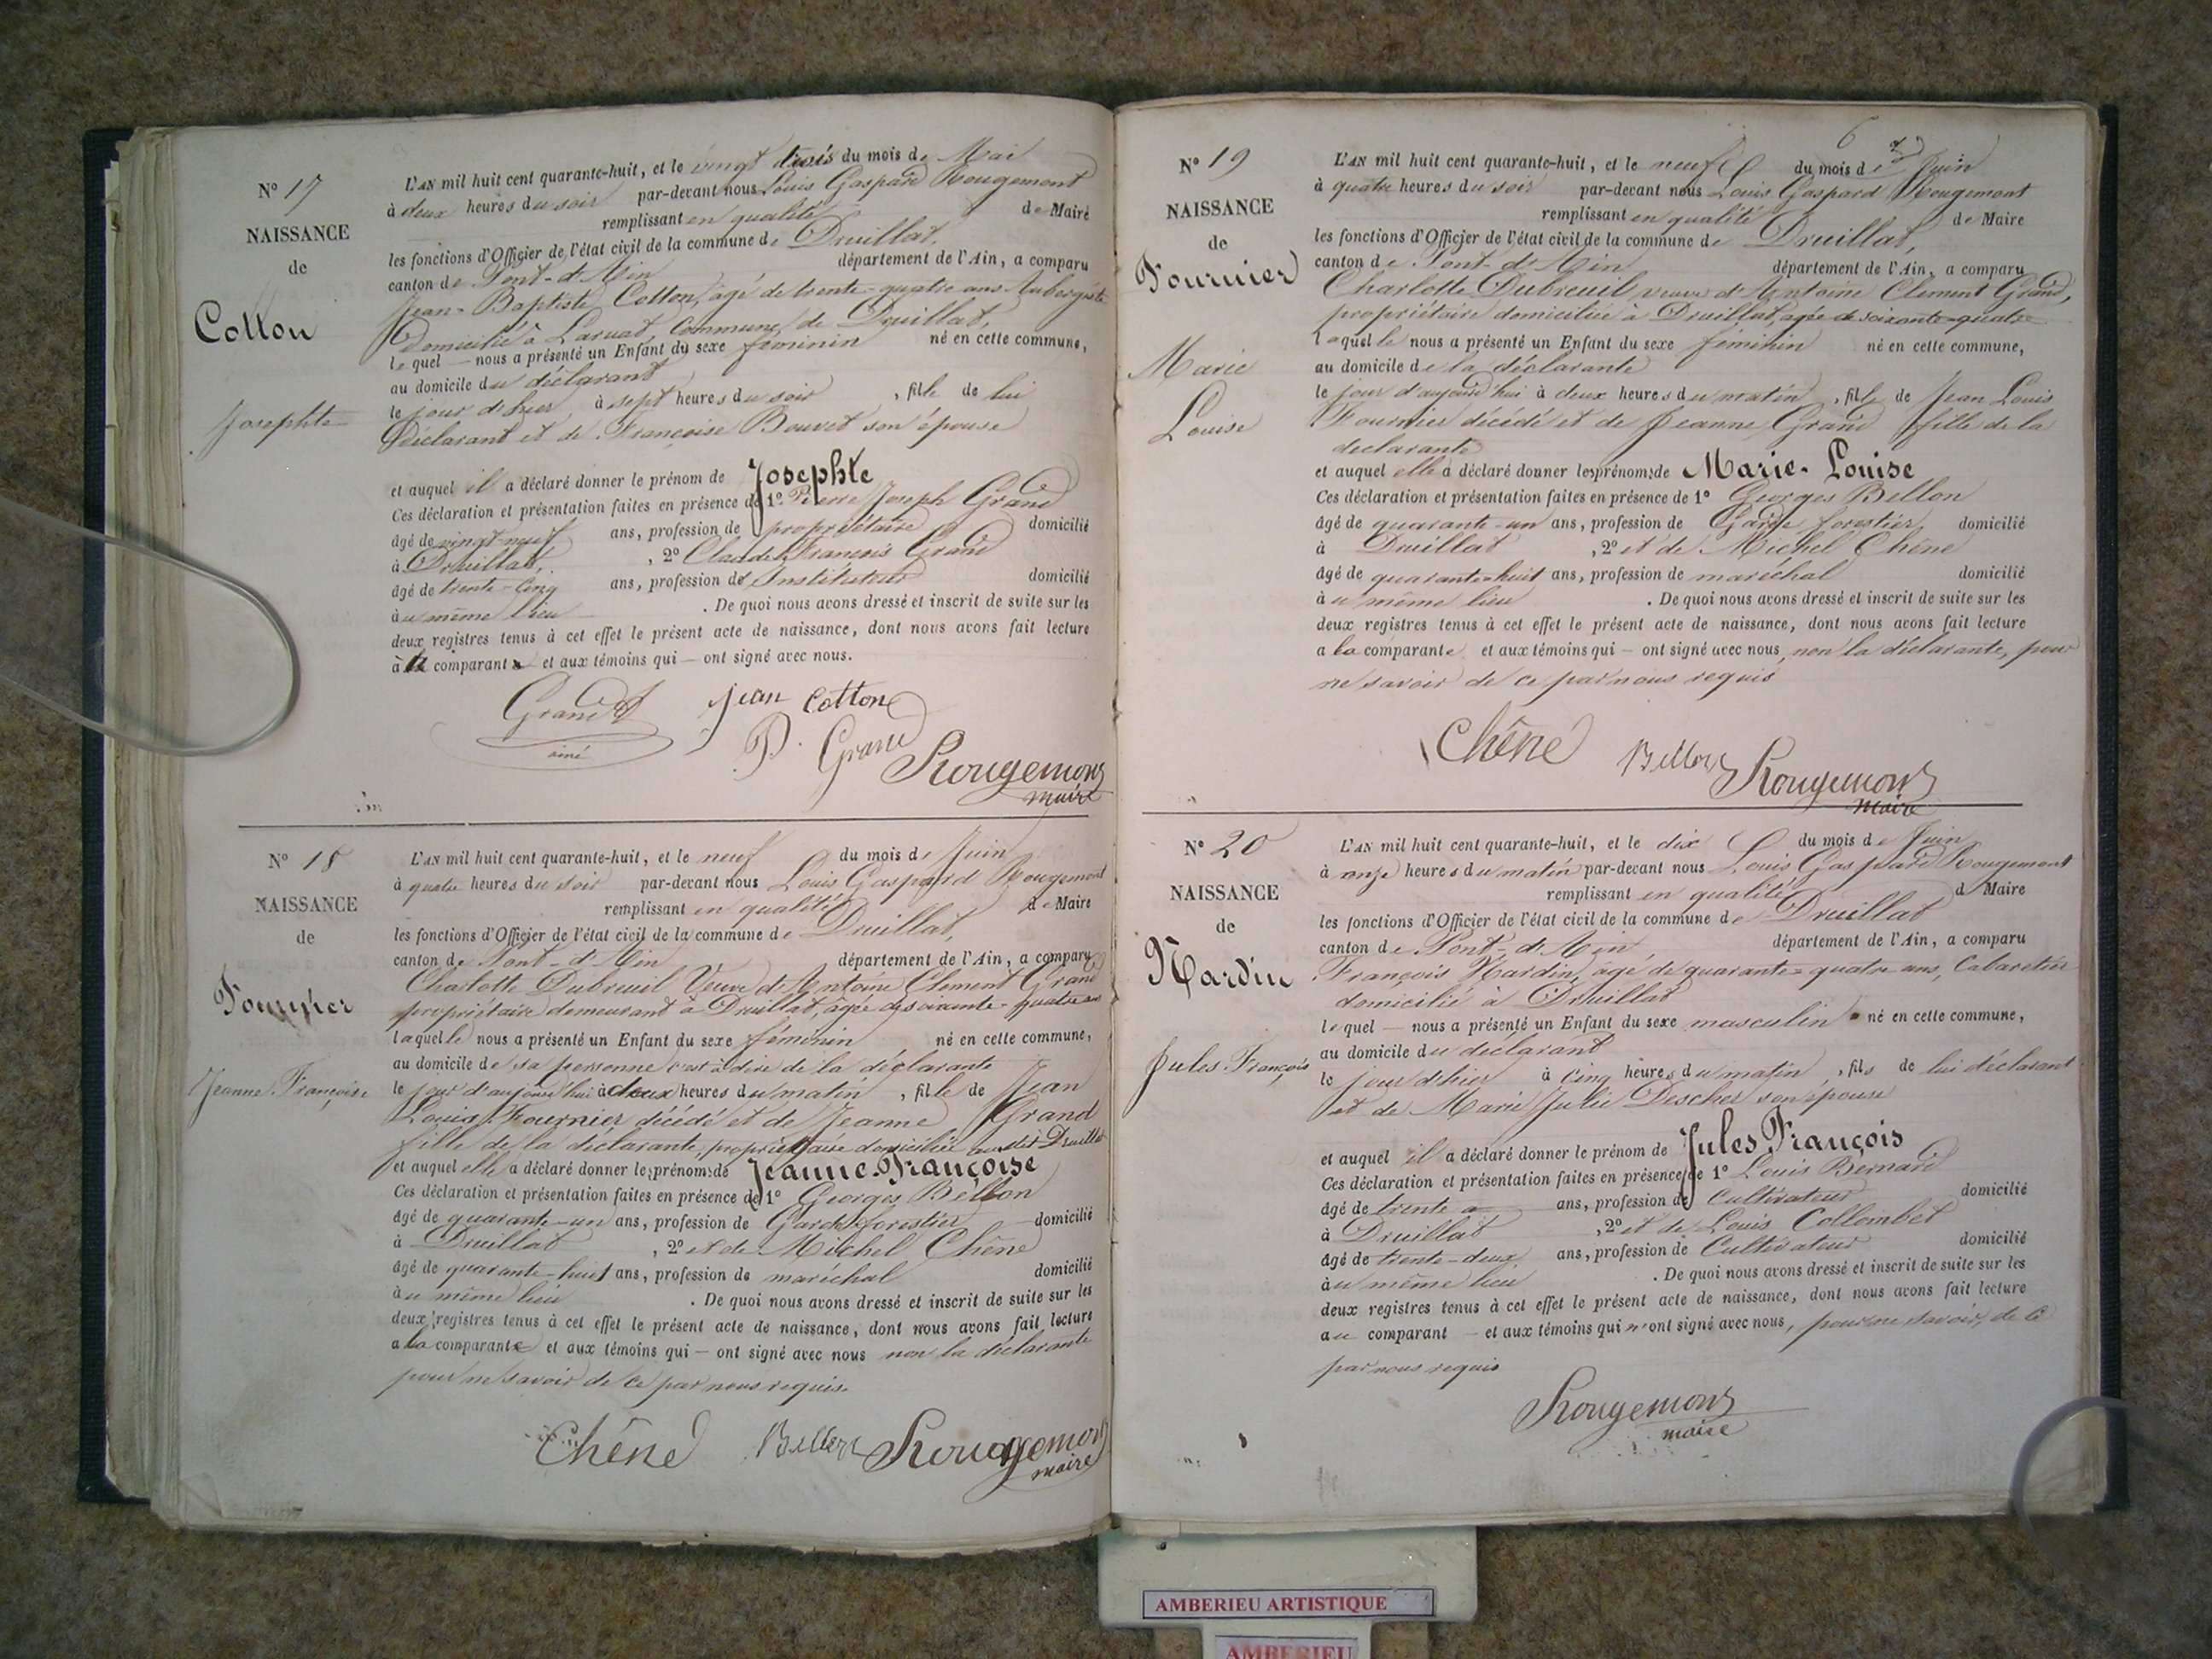 N° 17
NAISSANCE
de
Cotton
Josephte
L'AN mil huit cent quarante-huit, et le vingt trois du mois de Mai
à deux heures du soir par-devant nous Louis Gaspard Rougemont
remplissant en qualité de Maire
les fonctions d'Officier de l'état civil de la commune de Druillat,
canton de Pont-d'Ain département de l'Ain, a comparu
Jean-Baptiste Cotton, âgé de trente-quatre ans Aubergiste
Domicilié à Larnat, Commune de Druillat,
lequel — nous a présenté un Enfant du sexe féminin né en cette commune,
au domicile du déclarant
le jour d'hier, à sept heures du soir , fille de lui
déclarant et de Françoise Bouvet son épouse
et auquel il a déclaré donner le prénom de Josephte
Ces déclaration et présentation faites en présence de 1° Pierre Joseph Grand
âgé de vingt-neuf ans, profession de propriétaire domicilié
à Druillat, , 2° Claude François Grand
âgé de trente-cinq ans, profession de Instituteur domicilié
au même lieu . De quoi nous avons dressé et inscrit de suite sur les
deux registres tenus à cet effet le présent acte de naissance, dont nous avons fait lecture
à comparant et aux témoins qui — ont signé avec nous.
Grand jean Cotton
ainé P. Grand Rougemont
maire
N° 18
NAISSANCE
de
Fournier
Jeanne Françoise
L'AN mil huit cent quarante-huit, et le neuf du mois de Juin
à quatre heures du soir par-devant nous Louis Gaspard Rougemont
remplissant en qualité de Maire
les fonctions d'Officier de l'état civil de la commune de Druillat,
canton de Pont-d'Ain département de l'Ain, a comparu
Charlotte Dubreuil Veuve d'Antoine Clément Grand
propriétaire demeurant à Druillat, âgée de soixante-quatre ans
laquelle nous a présenté un Enfant du sexe féminin né en cette commune,
au domicile de sa personne c'est à dire de la déclarante
le jour d'aujourd'hui à deux heures du matin , fille de Jean
Louis Fournier décédé et de Jeanne Grand
fille de la déclarante, propriétaire domiciliée audit Druillat
et auquel elle a déclaré donner les prénoms de Jeanne-Françoise
Ces déclaration et présentation faites en présence de 1° Georges Bellon
âgé de quarante-un ans, profession de Garde forestier domicilié
à Druillat , 2° et de Michel Chêne
âgé de quarante-huit ans, profession de maréchal domicilié
au même lieu . De quoi nous avons dressé et inscrit de suite sur les
deux registres tenus à cet effet le présent acte de naissance, dont nous avons fait lecture
a la comparante et aux témoins qui — ont signé avec nous non la déclarante
pour ne savoir de ce par nous requis.
Chêne Bellon Rougemont
maire
6
N° 19
NAISSANCE
de
Fournier
Marie
Louise
L'AN mil huit cent quarante-huit, et le neuf du mois de Juin
à quatre heures du soir par-devant nous Louis Gaspard Rougemont
remplissant en qualité de Maire
les fonctions d'Officier de l'état civil de la commune de Druillat,
canton de Pont-d'Ain département de l'Ain, a comparu
Charlotte Dubreuil veuve d'Antoine Clement Grand,
propriétaire domiciliée à Druillat, agée de soixante-quatre
laquelle nous a présenté un Enfant du sexe féminin né en cette commune,
au domicile de la déclarante
le jour d'aujourd'hui à deux heures du matin , fille de Jean Louis
Fournier décédé et de Jeanne Grand fille de la
déclarante
et auquel elle a déclaré donner les prénoms de Marie-Louise
Ces déclaration et présentation faites en présence de 1° Georges Bellon
âgé de quarante-un ans, profession de Garde forestier domicilié
à Druillat , 2° et de Michel Chêne
âgé de quarante-huit ans, profession de maréchal domicilié
au même lieu . De quoi nous avons dressé et inscrit de suite sur les
deux registres tenus à cet effet le présent acte de naissance, dont nous avons fait lecture
a la comparante et aux témoins qui — ont signé avec nous, non la déclarante, pour
ne savoir de ce par nous requis
Chêne Bellon Rougemont
maire
N° 20
NAISSANCE
de
Nardin
Jules François
L'AN mil huit cent quarante-huit, et le dix du mois de Juin
à onze heures du matin par-devant nous Louis Gaspard Rougemont
remplissant en qualité d Maire
les fonctions d'Officier de l'état civil de la commune de Druillat
canton de Pont-d'Ain, département de l'Ain, a comparu
François Nardin, âgé de quarante-quatre ans, Cabaretier
domicilié à Druillat
lequel — nous a présenté un Enfant du sexe masculin né en cette commune,
au domicile du déclarant
le jour d'hier à cinq heures du matin , fils de lui déclarant
et de Marie Julie Descher son épouse
et auquel il a déclaré donner le prénom de Jules François
Ces déclaration et présentation faites en présence de 1° Louis Bernard
âgé de trente ans, profession de Cultivateur domicilié
à Druillat , 2° et de Louis Collombet
âgé de trente-deux ans, profession de Cultivateur domicilié
au même lieu . De quoi nous avons dressé et inscrit de suite sur les
deux registres tenus à cet effet le présent acte de naissance, dont nous avons fait lecture
au comparant — et aux témoins qui n'ont signé avec nous, pour ne savoir, de ce
par nous requis
Rougemont
maire
AMBERIEU ARTISTIQUE
AMBERIEU